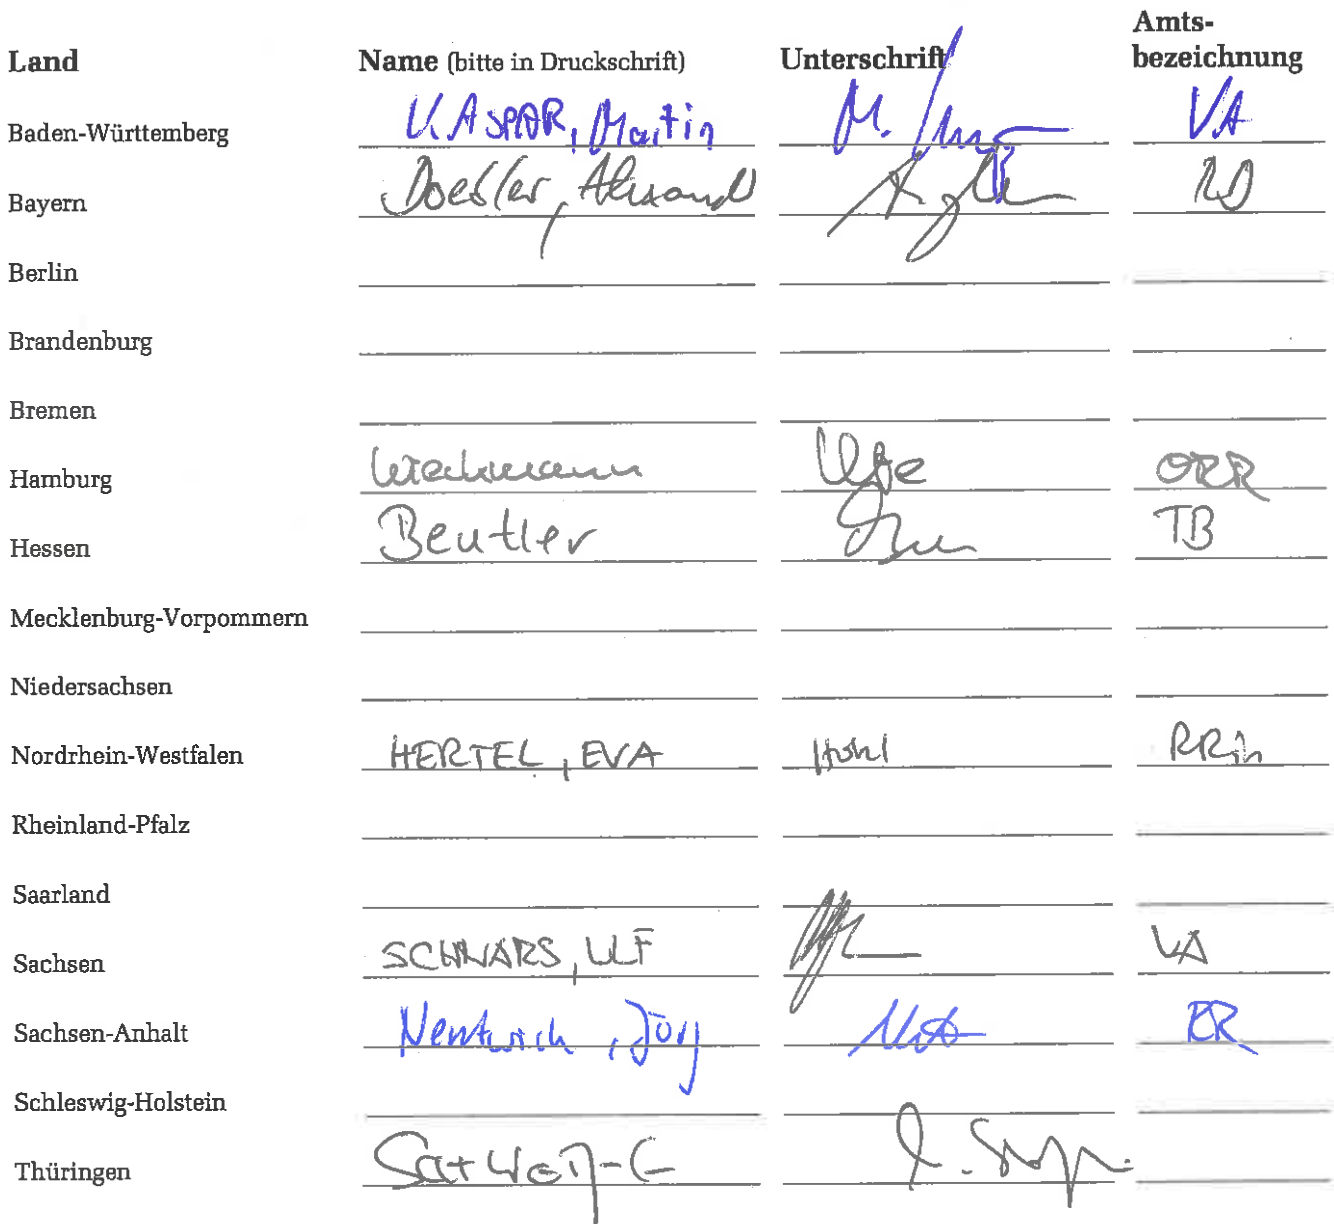 Land Name (bitte in Druckschrift) Unterschrift Amts-bezeichnung
Baden-Württemberg KASPAR, Martin M. VA
Bayern RD
Berlin
Brandenburg
Bremen
Hamburg Wiechmann ORR
Hessen Beutler TB
Mecklenburg-Vorpommern
Niedersachsen
Nordrhein-Westfalen HERTEL, EVA RRin
Rheinland-Pfalz
Saarland
Sachsen SCHWARS, ULF VA
Sachsen-Anhalt Nentwich, Jörg RR
Schleswig-Holstein
Thüringen